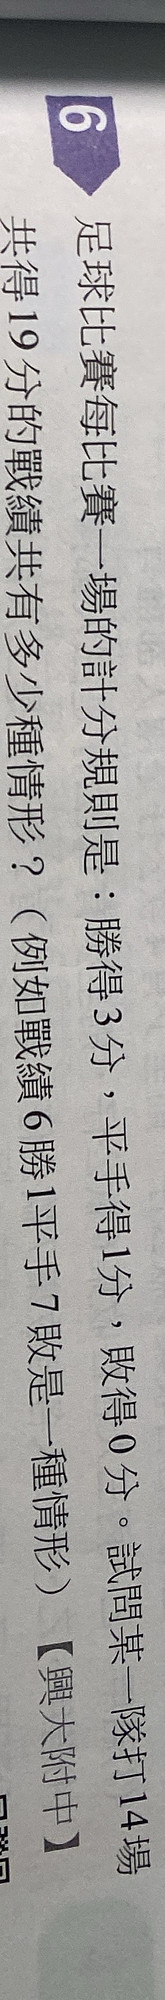 6 足球比賽每比賽一場的計分規則是：勝得3分，平手得1分，敗得0分。試問某一隊打14場
共得19分的戰績共有多少種情形？（例如戰績6勝1平手7敗是一種情形）【興大附中】